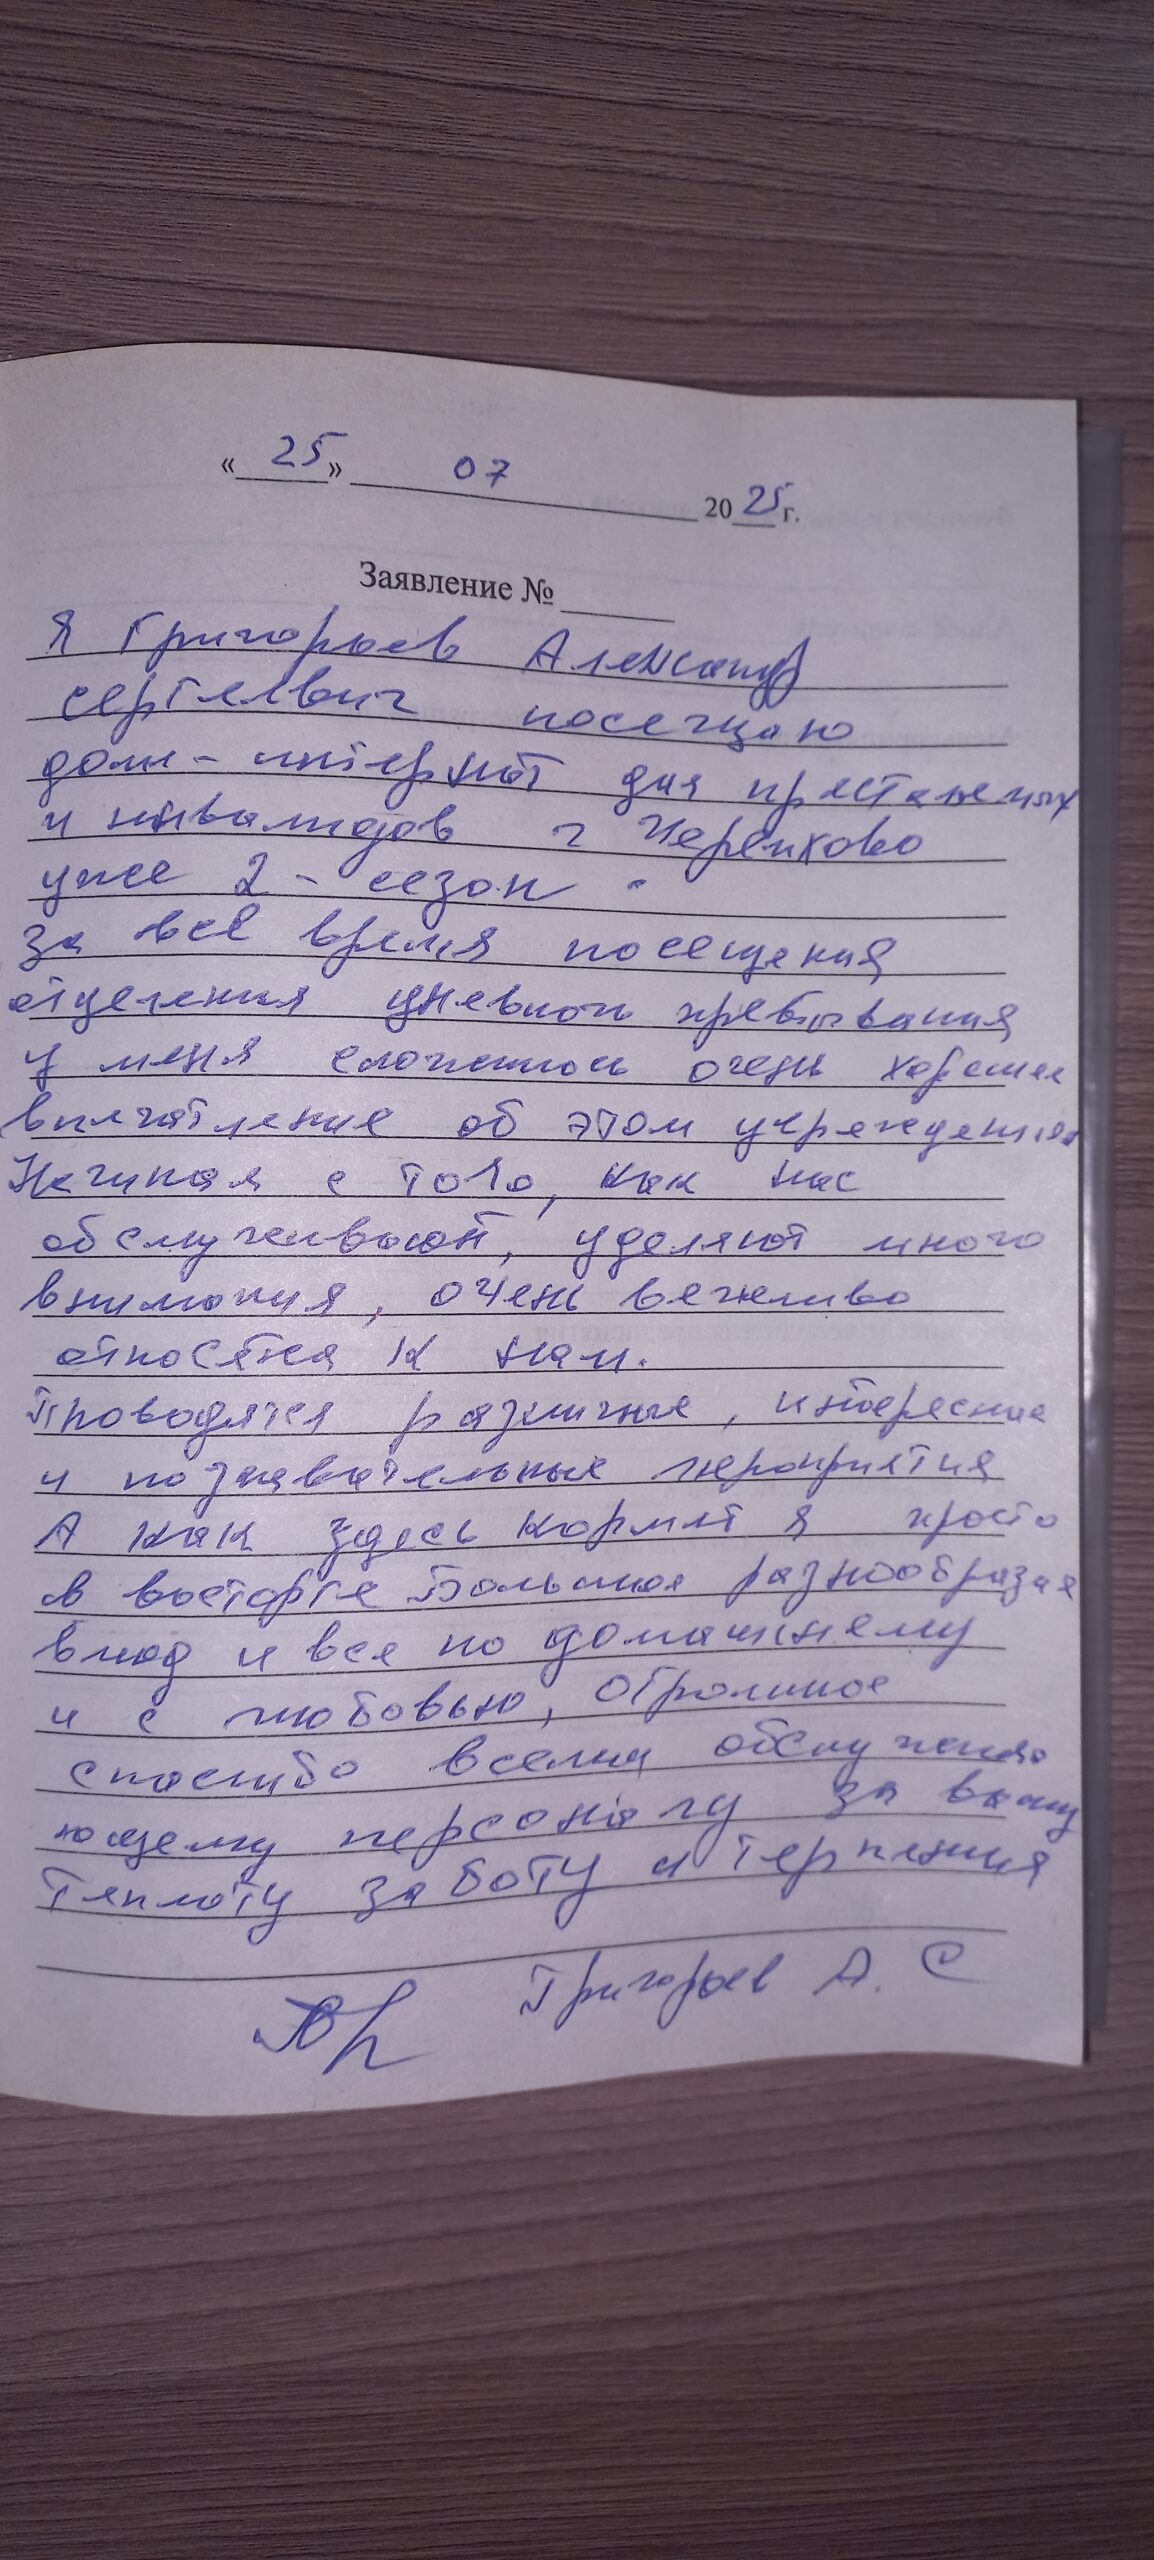 «25» 07 2025 г.
Заявление №
Я Григорьев Александр
Сергеевич посещаю
дом-интернат для престанелых
и инвалидов г Черемхово
уже 2-сезон.
за всё время посещения
отделения дневного пребывания
у меня сложилось очень хорошее
впечатление об этом учреждении
Начиная с того, как нас
обслуживают, уделяют много
внимания, очень вежливо
относятся к нам.
Проводятся различные, интересные
и познавательные мероприятия
А как здесь кормят я просто
в восторге Большое разнообразия
блюд и все по домашнему
и с любовью, огромное
спасибо всему обслужива
ющему персоналу за вашу
теплоту заботу и терпения
Григорьев А. С